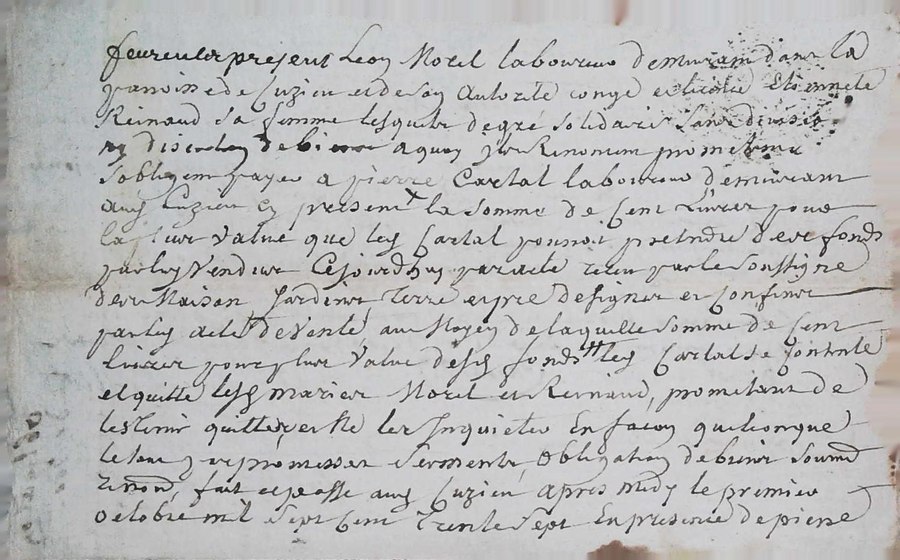 feurent present Leon Morel laboureur demeurant dans la
parroisse de Cuzieu et de son autorité congé et licence Etiennette
Reinaud sa femme lesquels de gré solidaires sans division
ny discution de biens a quoy ils Renoncent promettent
sobligent payer a pierre Cartal laboureur demeurant
aud Cuzieu cy present la somme de Cent Livres pour
la plus value que led Cartal pouvoit pretendre des fonds
par luy vendus Cejourdhuy par acte receu par le Soussigné
des Maison Jardins Terre et pré designés et Confinés
par led acte de vente, au Moyen de laquelle somme de Cent
livres pour plus value desd fonds led Cartal se contente
et quitte lesd mariés Morel et Reinaud, prometant de
les tenir quittes, et Ne les Inquieter En facon quelconque
le tout par promesses serments, obligation de biens soumd
renond, fait et passé aud Cuzieu apres midy le premier
octobre mil sept Cent Trente sept En presence de pierre